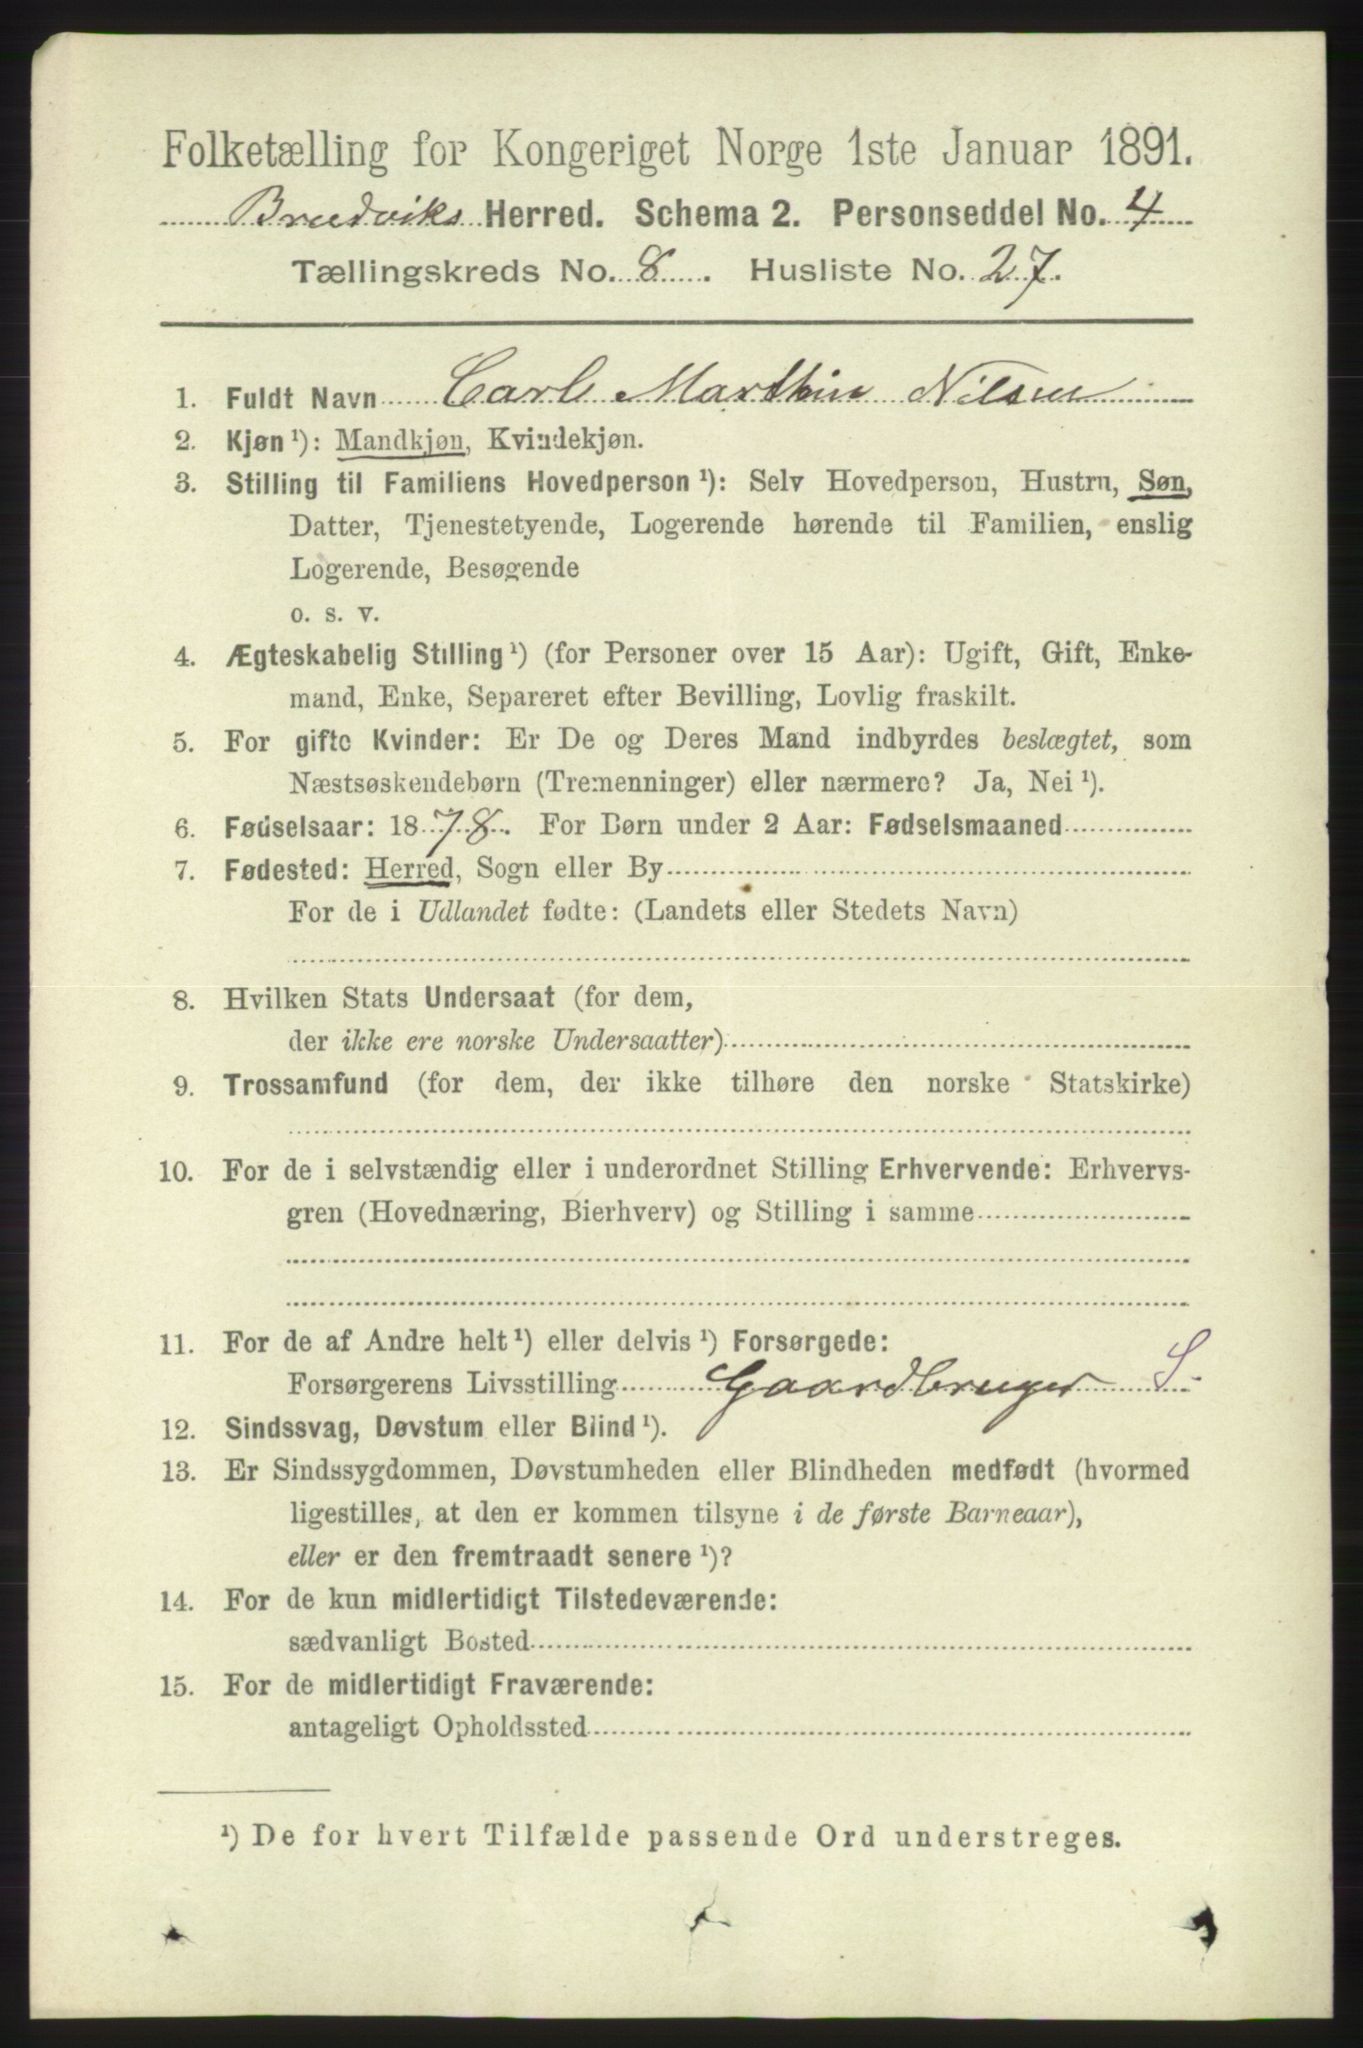 Folketælling for Kongeriget Norge 1ste Januar 1891.
Bruviks Herred. Schema 2. Personseddel No. 4
Tællingskreds No. 8. Husliste No. 27.
1. Fuldt Navn Carl Marthin Nilsen
2. Kjøn¹): Mandkjøn, Kvindekjøn.
3. Stilling til Familiens Hovedperson¹): Selv Hovedperson, Hustru, Søn,
Datter, Tjenestetyende, Logerende hørende til Familien, enslig
Logerende, Besøgende
o. s. v.
4. Ægteskabelig Stilling¹) (for Personer over 15 Aar): Ugift, Gift, Enke-
mand, Enke, Separeret efter Bevilling, Lovlig fraskilt.
5. For gifte Kvinder: Er De og Deres Mand indbyrdes beslægtet, som
Næstsøskendebørn (Tremenninger) eller nærmere? Ja, Nei¹).
6. Fødselsaar: 1878. For Børn under 2 Aar: Fødselsmaaned
7. Fødested: Herred, Sogn eller By
For de i Udlandet fødte: (Landets eller Stedets Navn)
8. Hvilken Stats Undersaat (for dem,
der ikke ere norske Undersaatter)
9. Trossamfund (for dem, der ikke tilhøre den norske Statskirke)
10. For de i selvstændig eller i underordnet Stilling Erhvervende: Erhvervs-
gren (Hovednæring, Bierhverv) og Stilling i samme
11. For de af Andre helt¹) eller delvis¹) Forsørgede:
Forsørgerens Livsstilling Gaardbruger S.
12. Sindssvag, Døvstum eller Blind¹).
13. Er Sindssygdommen, Døvstumheden eller Blindheden medfødt (hvormed
ligestilles, at den er kommen tilsyne i de første Barneaar),
eller er den fremtraadt senere¹)?
14. For de kun midlertidigt Tilstedeværende:
sædvanligt Bosted
15. For de midlertidigt Fraværende:
antageligt Opholdssted
¹) De for hvert Tilfælde passende Ord understreges.